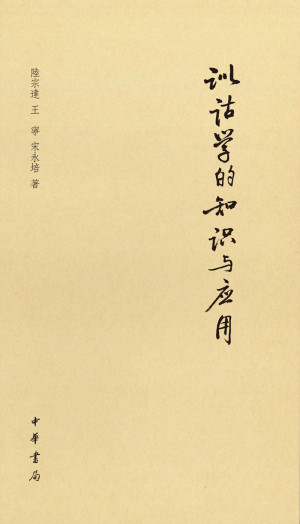 训诂学的知识与应用
陸宗達 王 寧 宋永培 著
中華書局